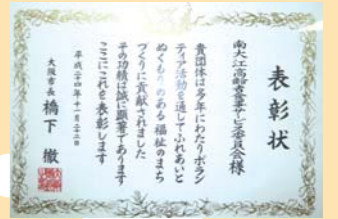 表彰状
南大江高齢者食事サービス委員会様
貴団体は多年にわたりボラン
ティア活動を通してふれあいと
ぬくもりのある福祉のまち
づくりに貢献されました
その功績は誠に顕著であります
ここにこれを表彰します
平成二十四年十一月二十二日
大阪市長 橋下 徹